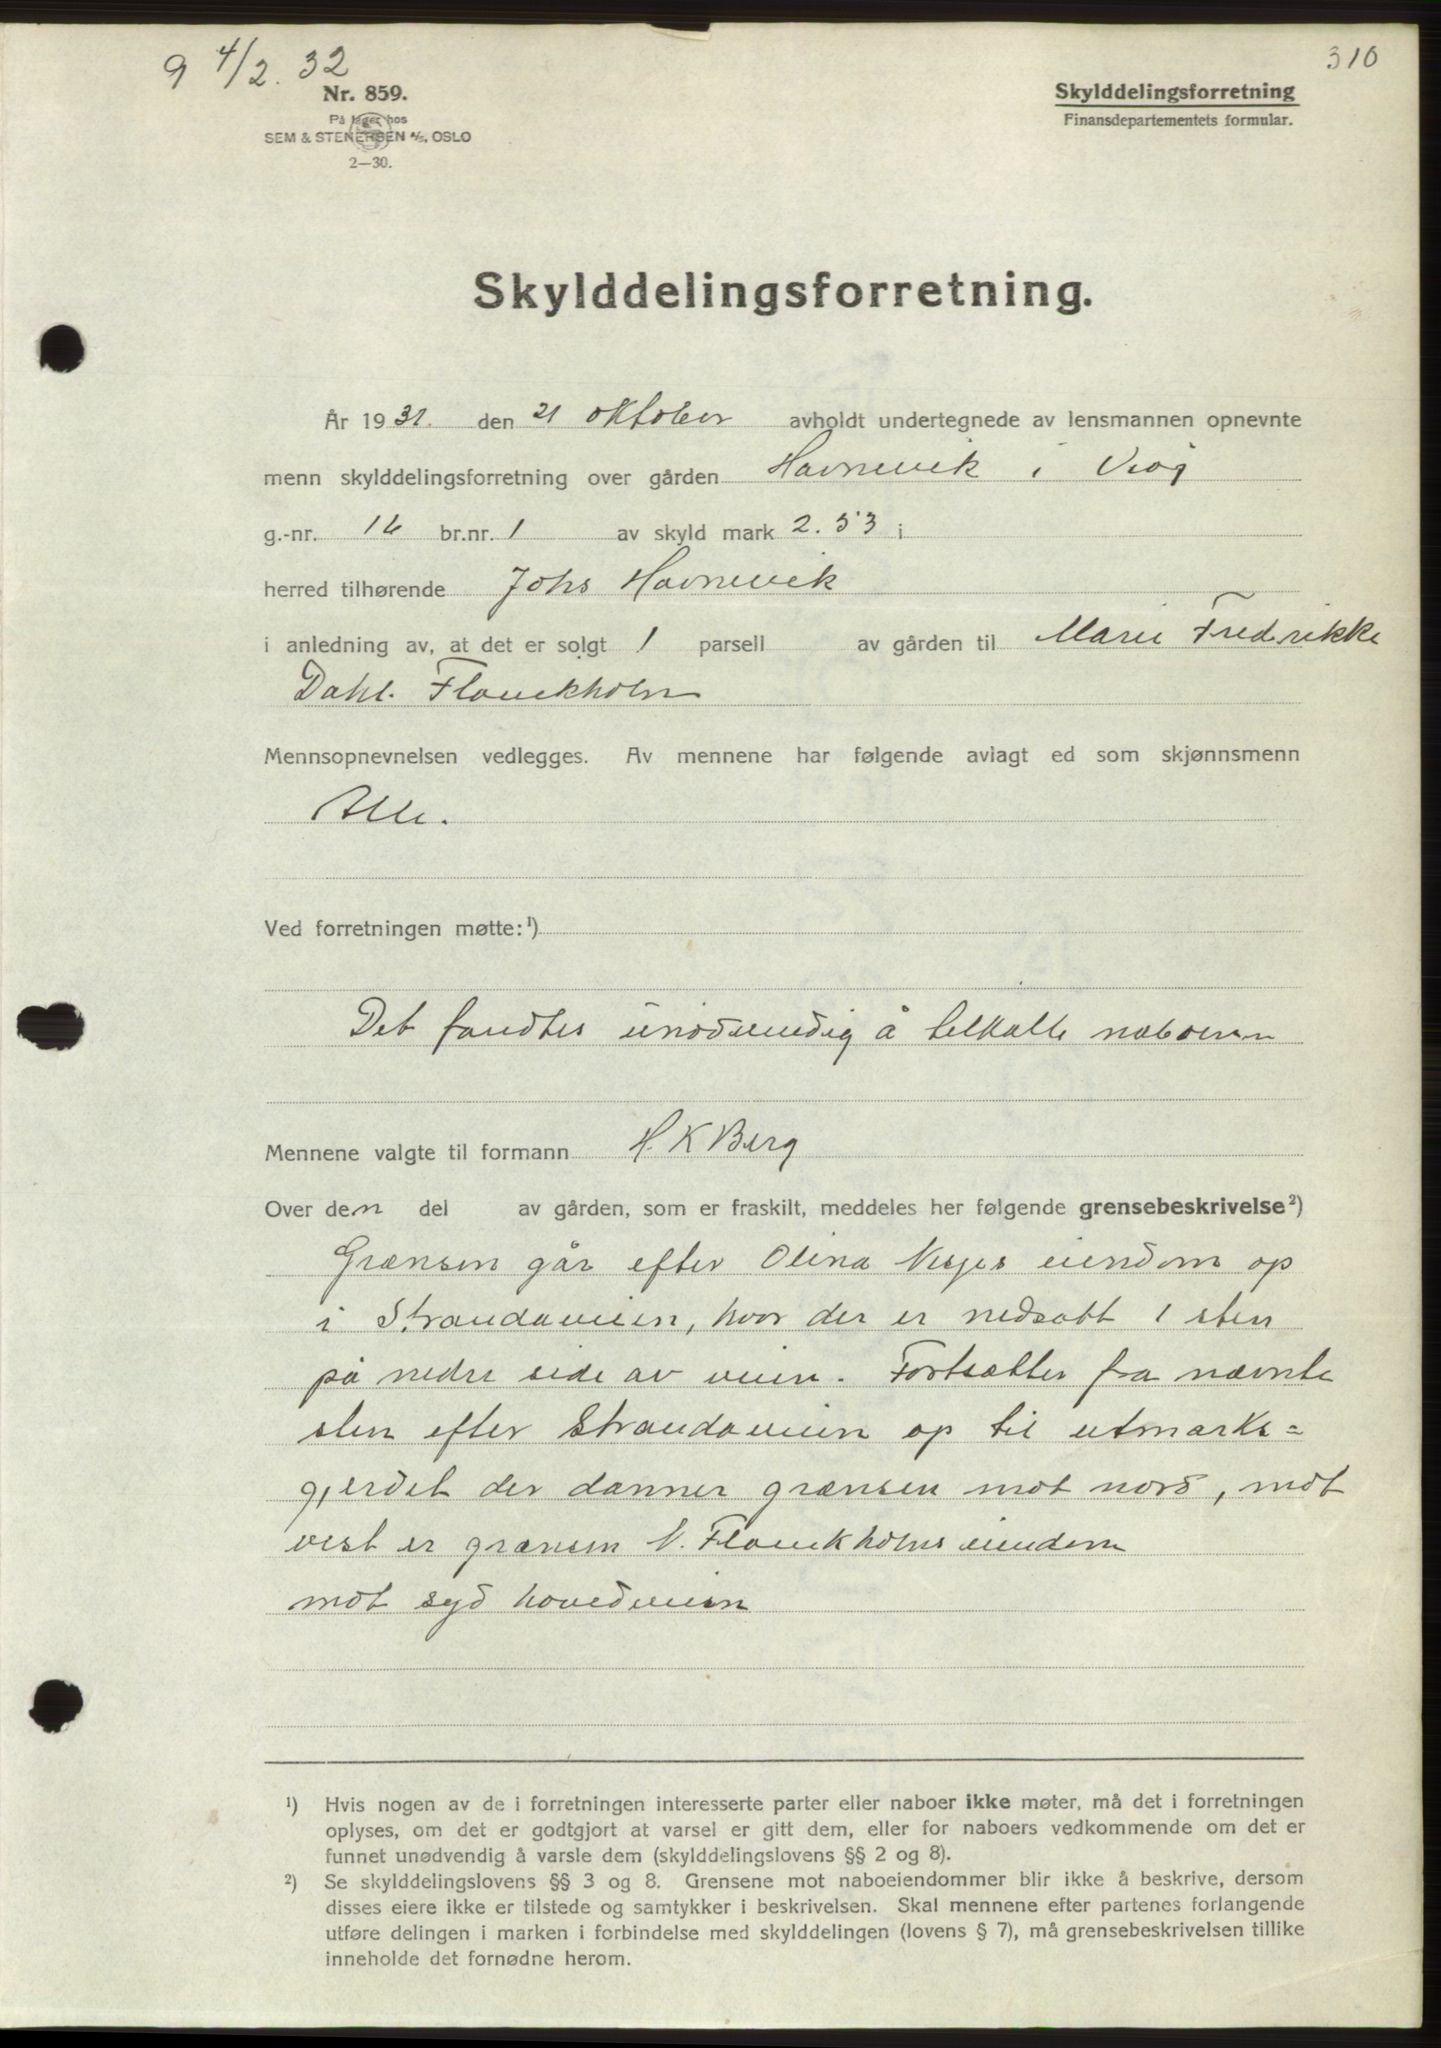 9 4/2. 32
310
Nr. 859.
På lager hos
SEM & STENERSEN A/S, OSLO
2—30.
Skylddelingsforretning
Finansdepartementets formular.
Skylddelingsforretning.
År 1931. den 21 oktober avholdt undertegnede av lensmannen opnevnte
menn skylddelingsforretning over gården Havnevik i Veøy
g.-nr. 16 br.nr. 1 av skyld mark 2.53 i
herred tilhørende Johs Havnevik
i anledning av, at det er solgt 1 parsell av gården til Marie Fredrikke
Dahl. Flovikholm
Mennsopnevnelsen vedlegges. Av mennene har følgende avlagt ed som skjønnsmenn
Alle.
Ved forretningen møtte:¹)
Det fandtes unødvendig å tilkalle naboerne
Mennene valgte til formann H. K Berg
Over den del av gården, som er fraskilt, meddeles her følgende grensebeskrivelse²)
Grænsen går efter Olina eiendom op
i Strandaveien, hvor der er nedsatt 1 sten
på nedre side av veien. Fortsætter fra nævnte
sten efter Strandaveien op til utmarks=
gjerdet der danner grænsen mot nord, mot
vest er grænsen Flovikholms eiendom
mot syd hovedveien
¹) Hvis nogen av de i forretningen interesserte parter eller naboer ikke møter, må det i forretningen
oplyses, om det er godtgjort at varsel er gitt dem, eller for naboers vedkommende om det er
funnet unødvendig å varsle dem (skylddelingslovens §§ 2 og 8).
²) Se skylddelingslovens §§ 3 og 8. Grensene mot naboeiendommer blir ikke å beskrive, dersom
disses eiere ikke er tilstede og samtykker i beskrivelsen. Skal mennene efter partenes forlangende
utføre delingen i marken i forbindelse med skylddelingen (lovens § 7), må grensebeskrivelsen tillike
inneholde det fornødne herom.